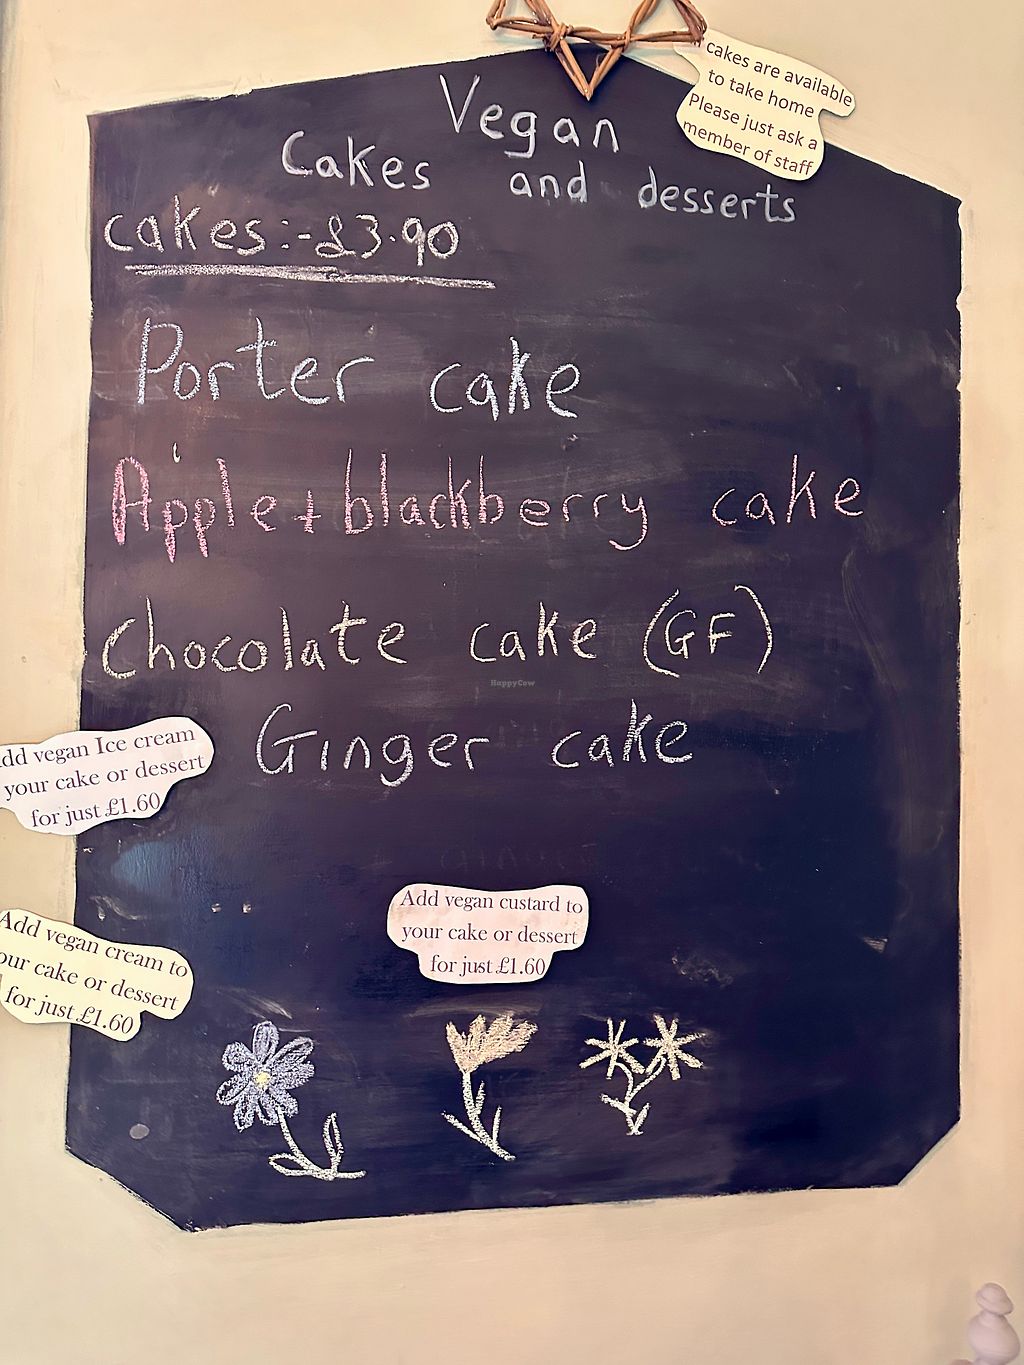 cakes are available
to take home
Please just ask a
member of staff
Vegan
Cakes and desserts
cakes:-£3.90
Porter cake
Apple+blackberry cake
Chocolate cake (GF)
Ginger cake
dd vegan Ice cream
your cake or dessert
for just £1.60
Add vegan custard to
your cake or dessert
for just £1.60
Add vegan cream to
our cake or dessert
for just £1.60
HappyCow